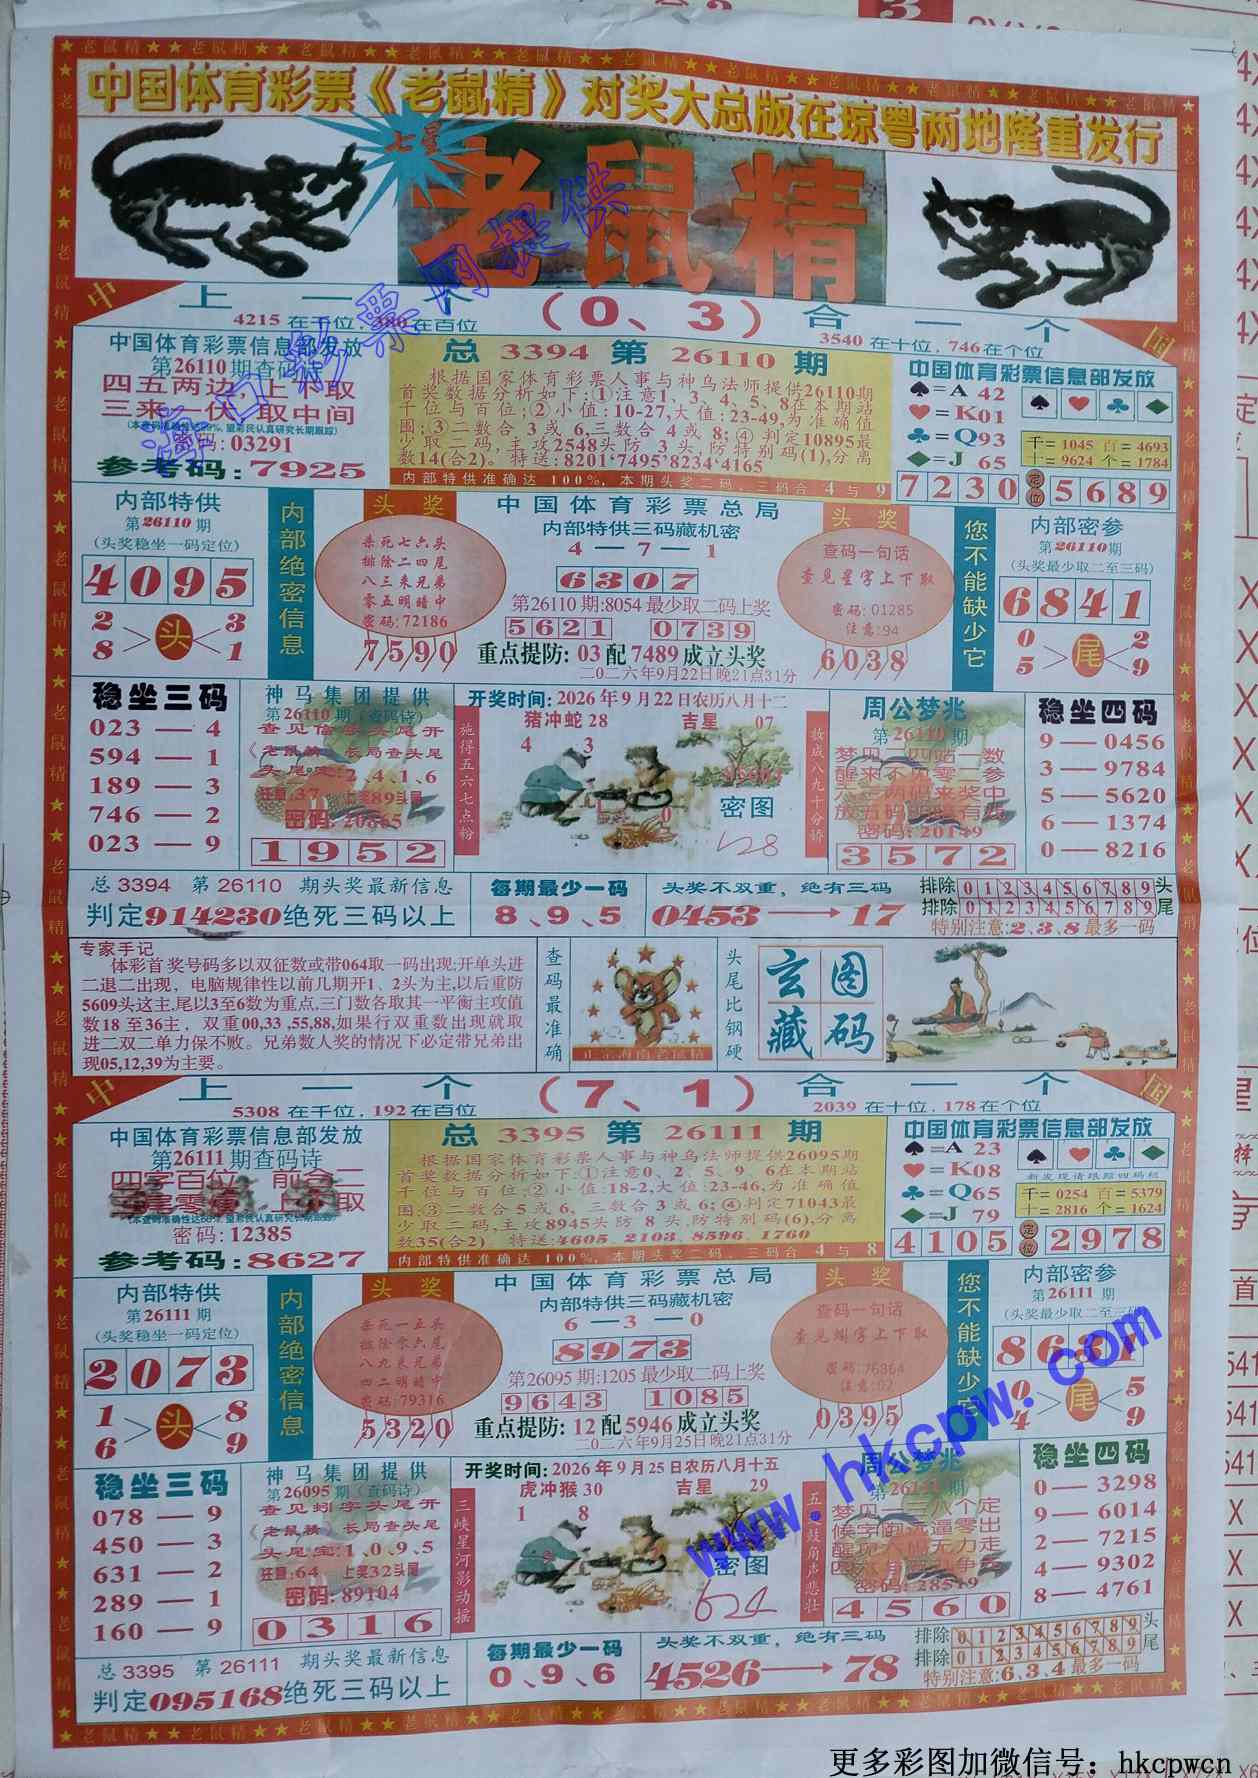 中国体育彩票《老鼠精》对奖大总版在琼粤两地隆重发行
七星
老鼠精
中
国
上一天（0、3）合一个
4215 在千位，380 在百位
3540 在十位，746 在个位
中国体育彩票信息部发放
第26110期查码诗
四五两边，上下取
三来一伏，取中间
密码：03291
参考码：7925
总 3394 第 26110 期
根据国家体育彩票人事与神乌法师提供26110期
首奖数据分析如下：①注意1、3、4、5、8在本期站
千位与百位；②小值：10-27，大值：23-49，为准确值
围；③二数合 3 或 6，三数合 4 或 8；④判定10895最
少取二码，主攻2548头防 3 头，防特别码(1)，分离
数14(合2)．特送：8201*7495*8234*4165
内部特供准确达 100%，本期头奖二码，三码合 4 与 9
中国体育彩票信息部发放
♠=A 42
♥=K01
♣=Q93
♦=J 65
千= 1045 百= 4693
十= 9624 个= 1784
7230 定位 5689
内部特供
第26110期
(头奖稳坐一码定位)
4095
2 8 > 头 < 3 1
内部绝密信息
头奖
杀死七六头
排除二四尾
八三来兄弟
零五明暗中
密码:72186
7590
中国体育彩票总局
内部特供三码藏机密
4—7—1
6307
第26110期:8054最少取二码上奖
5621 0739
重点提防: 03配7489成立头奖
二〇二六年9月22日晚21点31分
头奖
查码一句话
查见星字上下取
密码:01285
注意:94
6038
您不能缺少它
内部密参
第26110期
(头奖最少取二至三码)
6841
0 5 > 尾 < 2 9
稳坐三码
023 — 4
594 — 1
189 — 3
746 — 2
023 — 9
神马集团提供
第26110期(查码诗)
《老鼠精》长局查头尾
头尾定:2、4、1、6
注意:37 上奖89头尾
密码:20865
1952
开奖时间: 2026年9月22日农历八月十二
猪冲蛇 28 吉星 07
4 3
施得五六七点粉
密图
妆成八九十分娇
周公梦兆
第26110期
密码:20149
3572
稳坐四码
9 — 0456
3 — 9784
5 — 5620
6 — 1374
0 — 8216
总 3394 第 26110 期头奖最新信息
判定914230绝死三码以上
每期最少一码
8、9、5
头奖不双重，绝有三码
0453→17
排除 0 1 2 3 4 5 6 7 8 9 头
排除 0 1 2 3 4 5 6 7 8 9 尾
特别注意:2、3、8最多一码
专家手记
体彩首奖号码多以双征数或带064取一码出现;开单头进
二退二出现，电脑规律性以前几期开1、2头为主,以后重防
5609头这主,尾以3至6数为重点,三门数各取其一平衡主攻值
数18至36主，双重00,33,55,88,如果行双重数出现就取
进二双二单力保不败。兄弟数人奖的情况下必定带兄弟出
现05,12,39为主要。
查码最准确
正宗海南老鼠精
头尾比钢硬
玄图藏码
中
国
上一个（7、1）合一个
5308 在千位，192 在百位
2039 在十位，178 在个位
中国体育彩票信息部发放
第26111期查码诗
密码:12385
参考码:8627
总 3395 第 26111 期
根据国家体育彩票人事与神乌法师提供26095期
首奖数据分析如下:①注意0、2、5、9、6在本期站
千位与百位;②小值:18-2,大值:23-46,为准确值
围;③二数合 5 或 6，三数合 3 或 6;④判定71043最
少取二码,主攻8945头防 8 头,防特别码(6),分离
数35(合2)．特送:4605、2103、8596、1760
内部特供准确达 100%，本期头奖二码，三码合 4 与 8
中国体育彩票信息部发放
♠=A 23
♥=K08
♣=Q65
♦=J 79
新发现请跟踪四码组
千= 0254 百= 5379
十= 2816 个= 1624
4105 定位 2978
内部特供
第26111期
(头奖稳坐一码定位)
2073
1 6 > 头 < 8 9
内部绝密信息
头奖
杀死一五头
排除零六尾
八九来兄弟
四二明暗中
密码:79316
5320
中国体育彩票总局
内部特供三码藏机密
6—3—0
8973
第26095期:1205最少取二码上奖
9643 1085
重点提防: 12配5946成立头奖
二〇二六年9月25日晚21点31分
头奖
查码一句话
密码:76364
注意:02
0395
您不能缺少它
内部密参
第26111期
(头奖最少取二至三码)
8631
0 4 > 尾 < 5 9
稳坐三码
078 — 9
450 — 3
631 — 2
289 — 1
160 — 9
神马集团提供
第26095期(查码诗)
《老鼠精》长局查头尾
头尾定:1、0、9、5
注意:64 上奖32头尾
密码:89104
0316
开奖时间: 2026年9月25日农历八月十五
虎冲猴 30 吉星 29
1 8
三峡星河影动摇
密图
624
五更鼓角声悲壮
周公梦兆
密码:28519
4560
稳坐四码
0 — 3298
9 — 6014
2 — 7215
4 — 9302
8 — 4761
总 3395 第 26111 期头奖最新信息
判定095168绝死三码以上
每期最少一码
0、9、6
头奖不双重，绝有三码
4526→78
排除 0 1 2 3 4 5 6 7 8 9 头
排除 0 1 2 3 4 5 6 7 8 9 尾
特别注意:6、3、4最多一码
海口彩票网提供
www.hkcpw.com
更多彩图加微信号：hkcpwcn